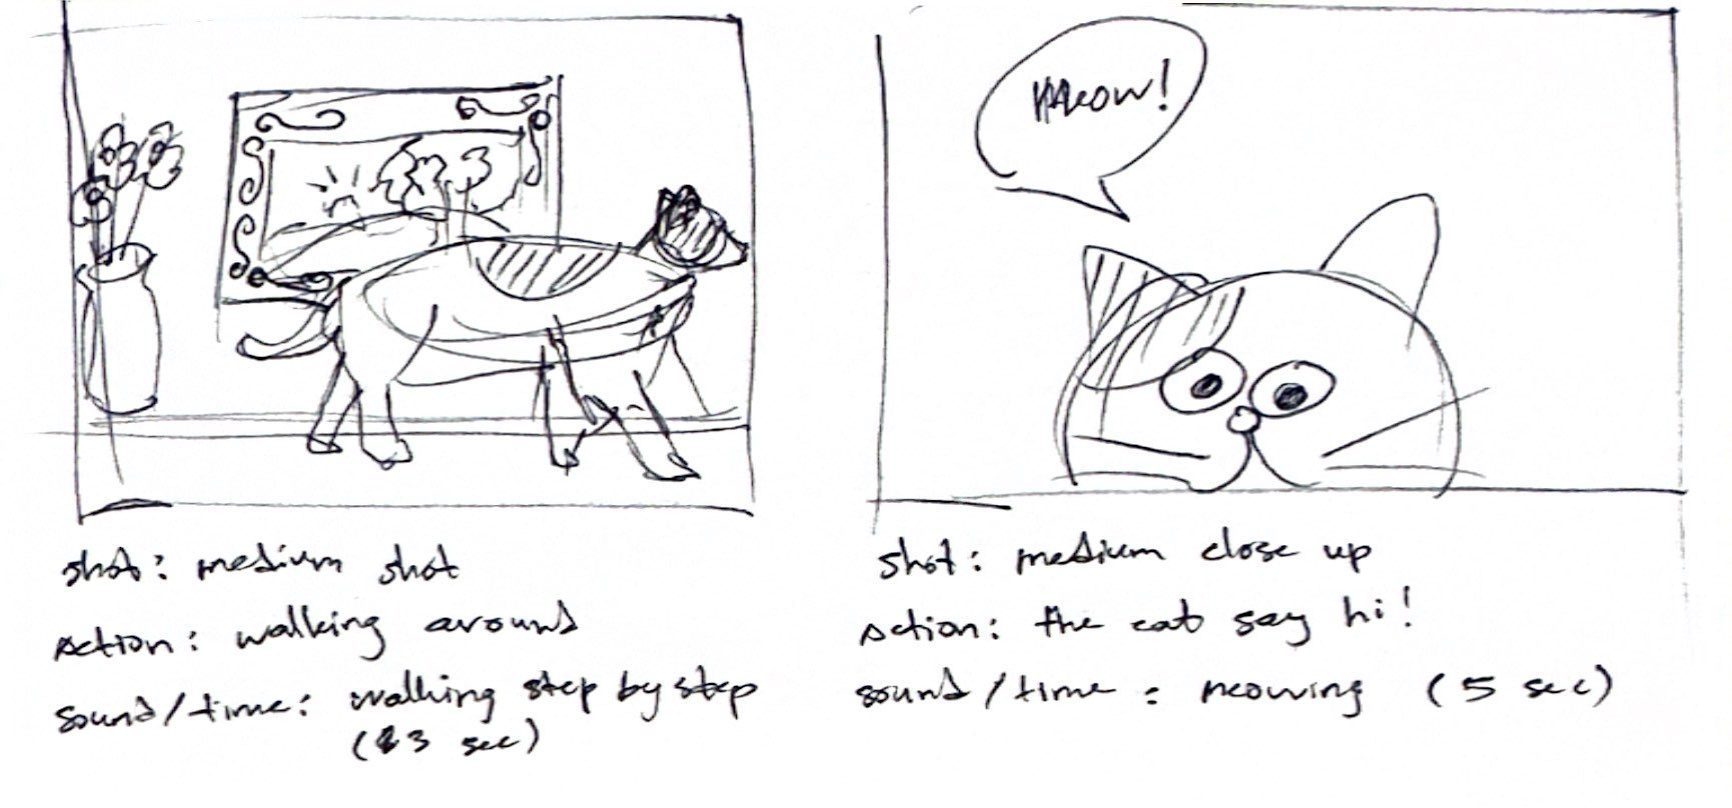 Meow!
shot: medium shot
Action: walking around
sound/time: walking step by step
(3 sec)
shot: medium close up
Action: the cat say hi!
sound/time: meowing (5 sec)